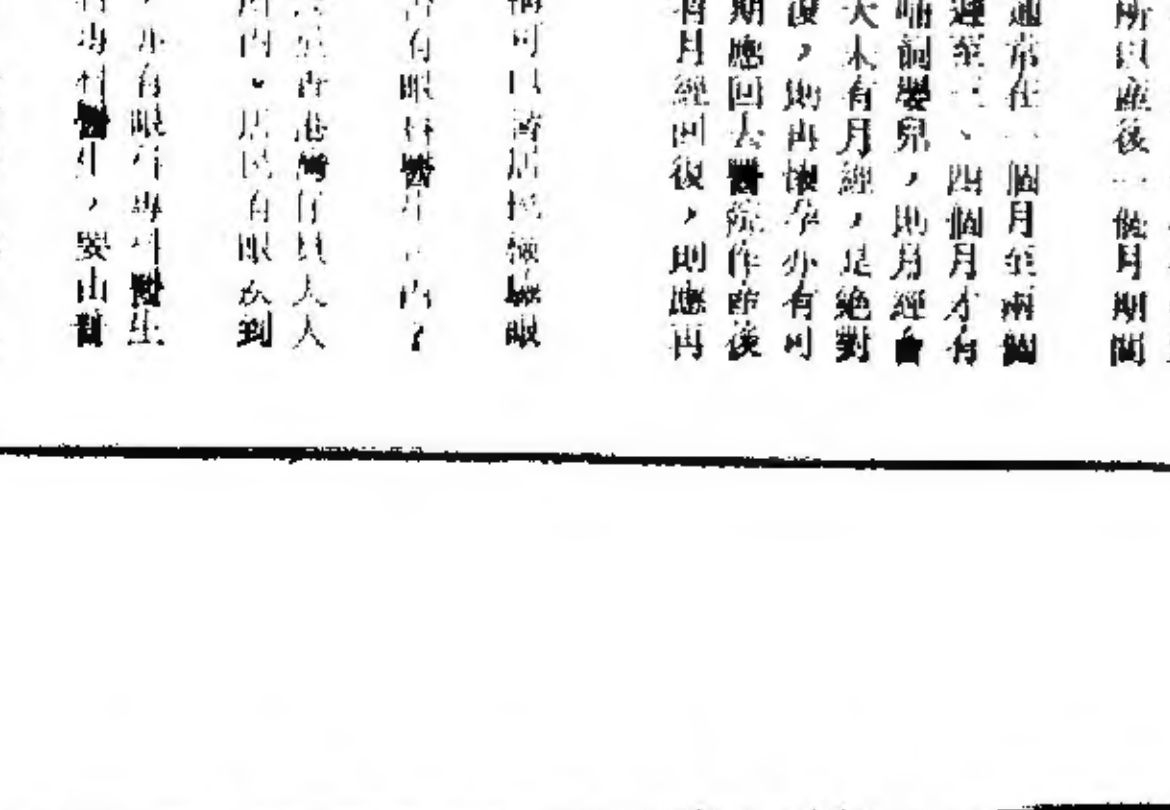 所以產後一個月期間
通常在一個月至兩個
遲至三、四個月才有
哺飼嬰兒，則月經會
天未有月經，是絕對
復，則再懷孕亦有可
期應回去醫院作產後
有月經回復，則應再
可以替居民檢驗眼
否有眼科醫生在內？
至香港灣仔貝夫人
所內。居民有眼疾到
，亦有眼科專科醫生
有專科醫生，要由普